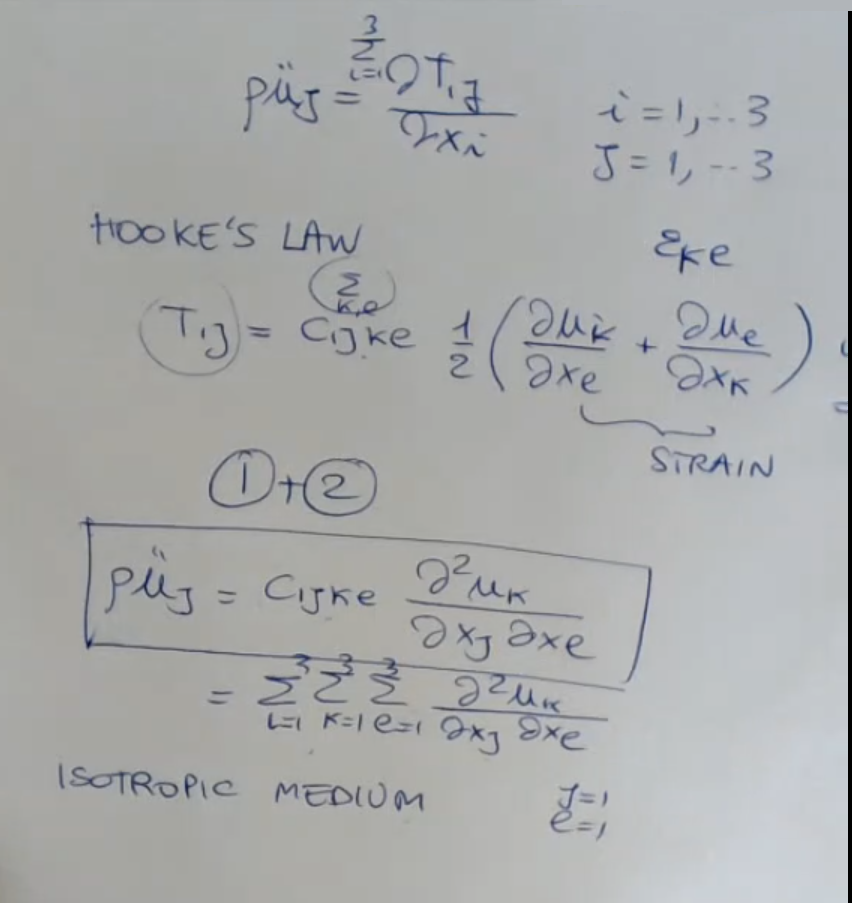 ρü_J = Σ_{i=1}^{3} ∂T_{iJ} / ∂x_i    i = 1, .. 3
J = 1, -- 3
HOOKE'S LAW    ε_{Ke}
T_{iJ} = Σ_{K,e} C_{iJKe} 1/2 ( ∂u_K / ∂x_e + ∂u_e / ∂x_K )
STRAIN
① + ②
ρü_J = C_{iJKe} ∂²u_K / ∂x_J ∂x_e
= Σ_{i=1}^{3} Σ_{K=1}^{3} Σ_{e=1}^{3} ∂²u_K / ∂x_J ∂x_e
ISOTROPIC MEDIUM    J=1
e=1